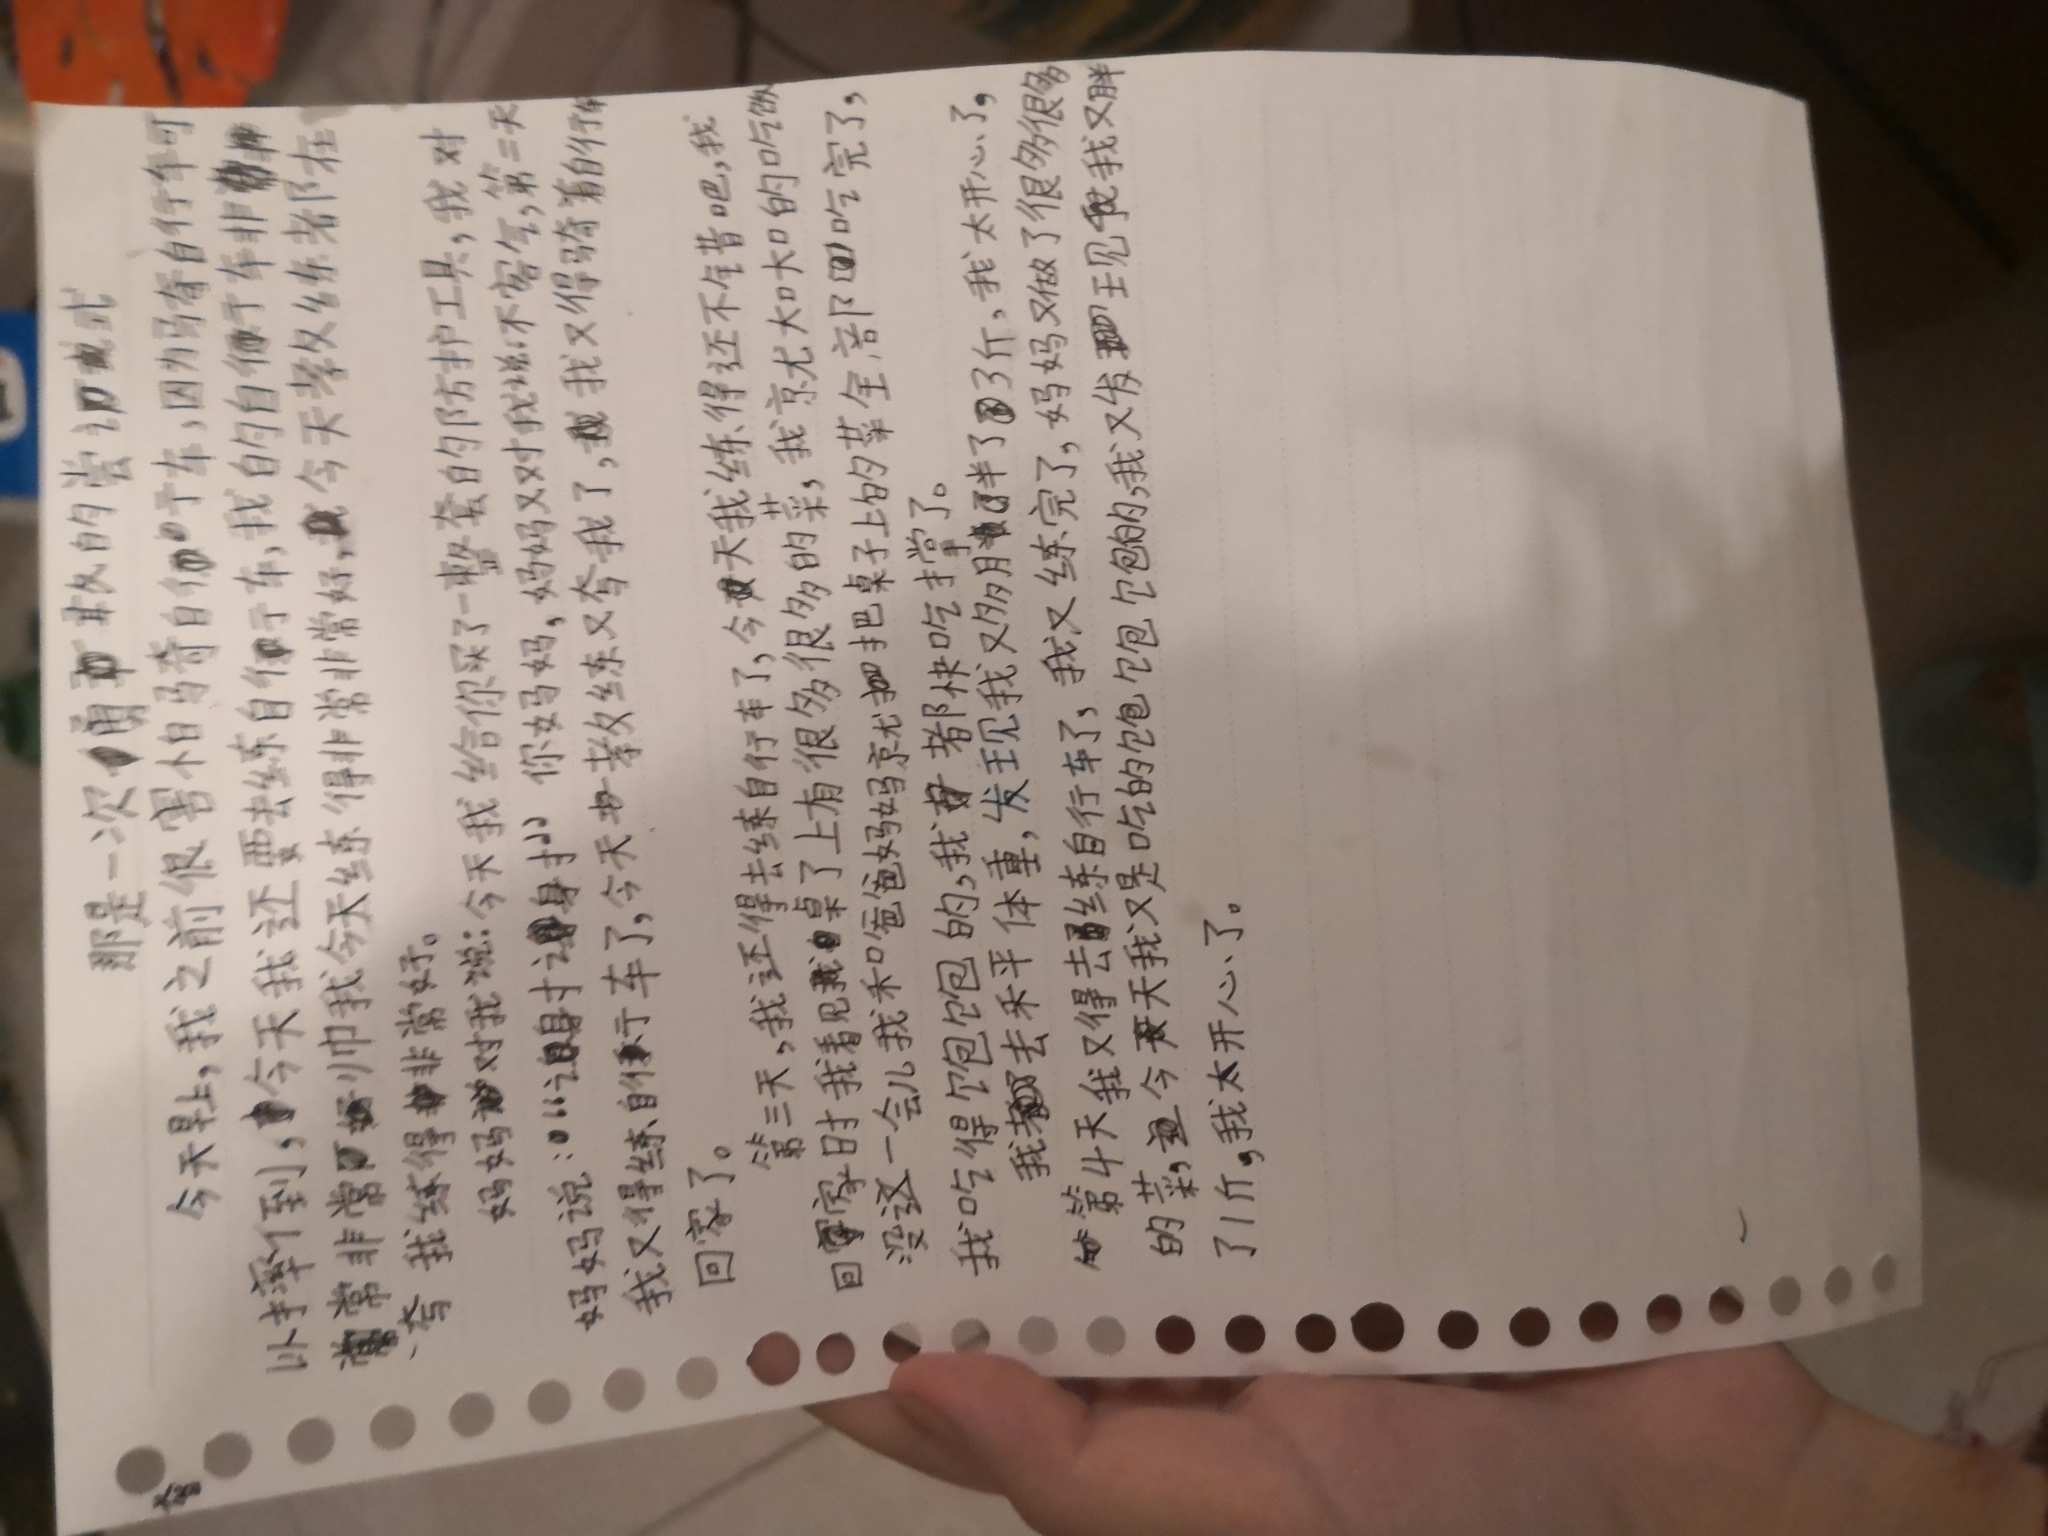 那是一次勇敢的尝试
今天早上,我之前很害怕骑自行车,因为骑自行车可
以摔倒,今天我还要去练自行车,我的自行车非
常非常好帅我今天练得非常非常好,今天教练都在
夸我练得非常好。
妈妈对我说:今天我给你买了一整套的防护工具,我对
妈妈说:“谢谢”你妈妈,妈妈又对我说不客气,第二天
我又得练自行车了,今天教练又夸我了,我又得骑着自行车
回家了。
第三天,我还得去练自行车了,今天我练得还不错吧,我
回家时我看见桌了上有很多很多的菜,我就大口大口的吃饭
没这一会儿我和爸爸妈妈就把桌子上的菜全部吃完了,
我吃得饱饱饱的,我都快吃撑了。
我去秤体重,发现我又多胖了3斤,我太开心了,
第4天我又得去练自行车了,我又练完了,妈妈又做了很多很多
的菜,今天我又是吃的饱饱饱饱的,我又发现我又胖
了1斤,我太开心了。